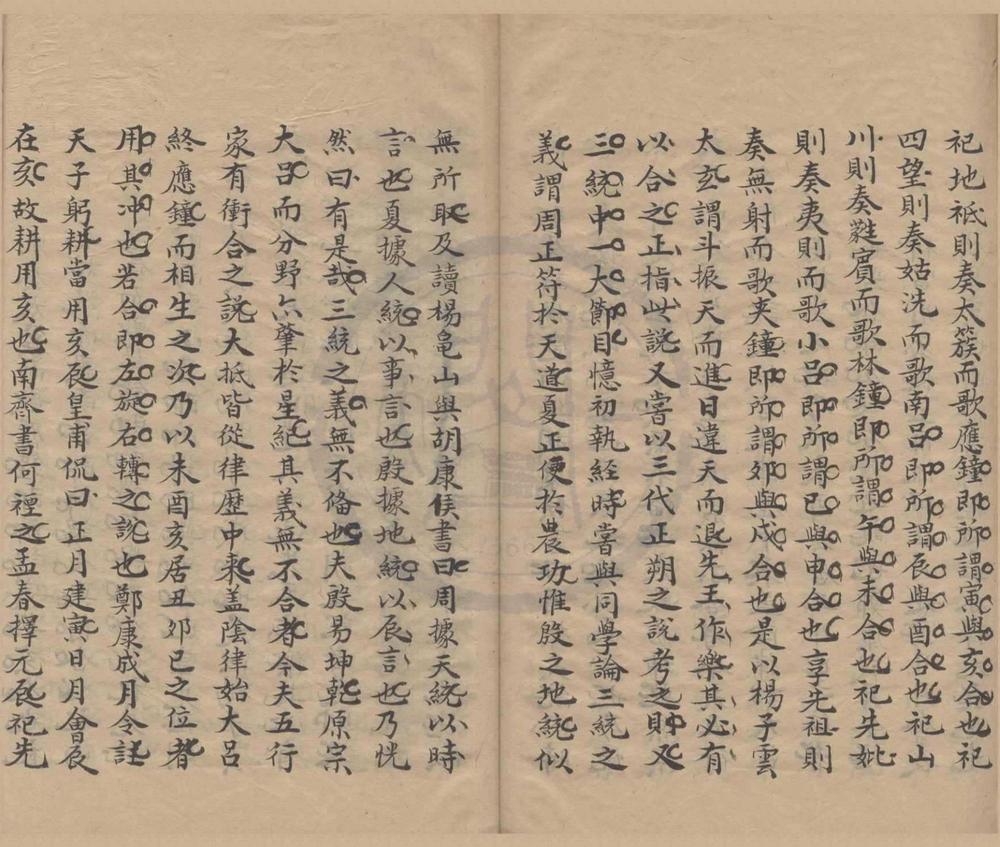 祀地祗則奏太簇而歌應鐘即所謂寅與亥合也祀
四望則奏姑洗而歌南呂即所謂辰與酉合也祀山
川則奏蕤賓而歌林鐘即所謂午與未合也祀先妣
則奏夷則而歌小呂即所謂巳與申合也享先祖則
奏無射而歌夹鐘即所謂夘與戌合也是以楊子雲
太玄謂斗振天而進日違天而退先王作樂其必有
以合之正指此説又嘗以三代正朔之説考之則又
三統中一大節目憶初執經時嘗與同學論三統之
義謂周正符於天道夏正便於農功惟殷之地統似
無所取及讀楊龜山與胡康侯書曰周據天統以時
言也夏據人統以事言也殷據地統以辰言也乃恍
然曰有是哉三統之義無不偹也夫殷易坤乾原宗
大呂而分野亦肇於星紀其義無不合者今夫五行
家有衝合之説大抵皆從律歷中来盖陰律始大呂
終應鐘而相生之次乃以未酉亥居丑夘巳之位者
用其冲也若合即左旋右轉之説也鄭康成月令註
天子躬耕當用亥辰皇甫侃曰正月建寅日月會辰
在亥故耕用亥也南齊書何禋之孟春擇元辰祀先